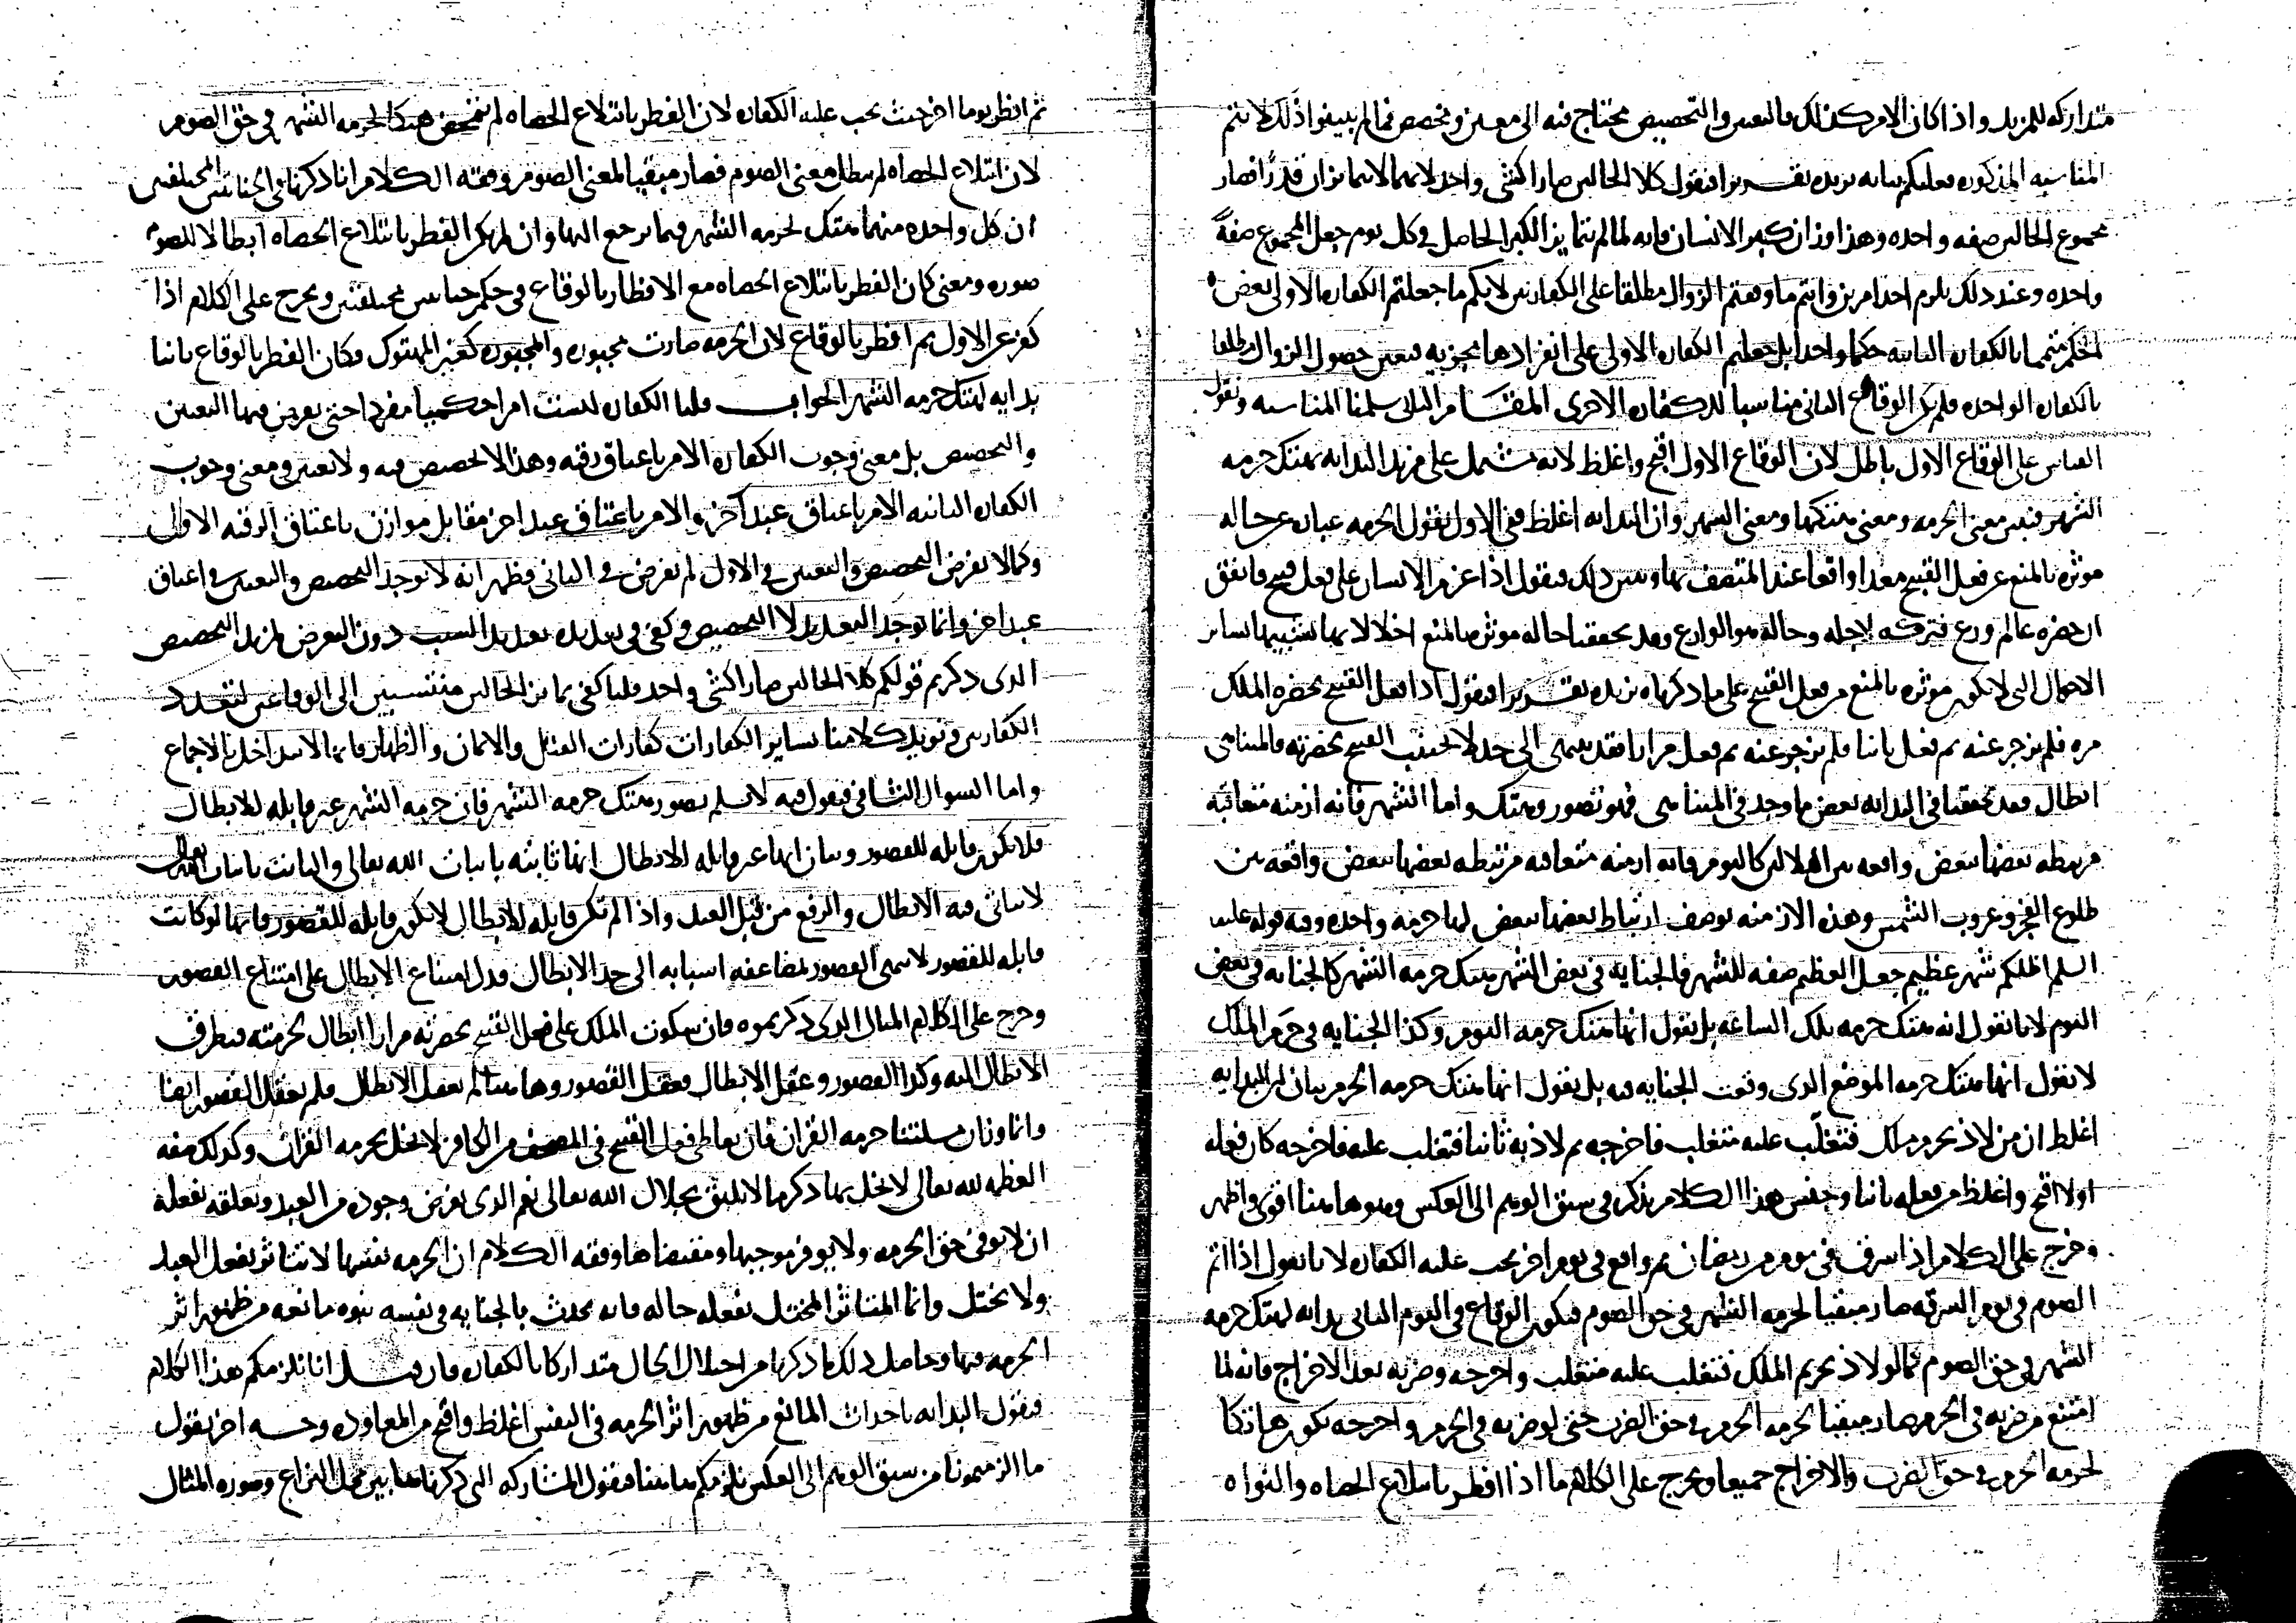 متداركه للمزيد واذا كان الامر كذلك فالتعيين والتخصيص يحتاج فيه الى معين ومخصص فما لم يبينوا ذلك لا يتم
المناسبه المذكوره فعليكم بيانه يزيده تقريرا فنقول كلا الحالين صارا كشئ واحد لانهما لا يتمايزان قدرا فصار
مجموع الحالين صفه واحده وهذا وزان كبر الانسان فانه لما لم يتمايز الكبر الحاصل في كل يوم جعل المجموع صفة
واحده وعند ذلك يلزم احد امرين وانتم ما وهمتم الزوال مطلقا على الكفارتين لانكم ما جعلتم الكفاره الاولى بعض
الحكم متمما بالكفاره الثانيه حكما واحدا بل جعلتم الكفاره الاولى على انفرادها مجزيه فتعين حصول الزوال مطلقا
بالكفاره الواحده فلم يكن الوقاع الثاني مناسبا للكفاره الاخرى المقام الثاني سلمنا المناسبه ونقول
القياس على الوقاع الاول باطل لان الوقاع الاول اقبح واغلظ لانه مشتمل على مزيد البدايه بهتك حرمه
الشهر فنبين معنى الحرمه ومعنى هتكها ومعنى الشهر وان البدايه اغلظ ففي الاول نقول الحرمه عباره عن حاله
موثره بالمنع عن فعل القبيح معدا واقعا عند المتصف بها وتبين ذلك فنقول اذا عزم الانسان على فعل قبيح فاتفق
ان حضره عالم ورع فتركه لاجله وحاله هو الوازع وهتكه تحققنا حاله موثره بالمنع اخلالا بها لتشبيهها بسائر
الاحوال التي لا تكون موثره بالمنع من فعل القبيح على ما ذكرناه نزيده تقريرا فنقول اذا فعل القبيح بحضره الملك
مره فلم يزجر عنه ثم فعل ثانيا فلم يزجر عنه ثم فعل مرارا فقد ينتهى الى حد لا يجتنب القبيح بحضرته فالمتناهي
ابطال وقد تحققنا في البدايه بعض ما وجد في المتناهي فهو تصور وهتك واما الشهر فانه ازمنه متعاقبه
مرتبطه بعضها ببعض واقعه بين الهلالين كاليوم فانه ازمنه متعاقبه مرتبطه بعضها ببعض واقعه بين
طلوع الفجر وغروب الشمس وهذه الازمنه بوصف ارتباط بعضها ببعض لها حرمه واحده وفيه قوله عليه
السلم اظلكم شهر عظيم جعل العظيم صفه للشهر فالجنايه في بعض الشهر هتك حرمه الشهر كالجنايه في بعض
اليوم لانا لا نقول انه هتك حرمه تلك الساعه بل نقول انها هتك حرمه اليوم وكذا الجنايه في حرم الملك
لا نقول انها هتك حرمه الموضع الذي وقعت الجنايه فيه بل نقول انها هتك حرمه الحرم بيان ان البدايه
اغلظ ان من لاذ بحرم ملك فتغلب عليه متغلب فاخرجه ثم لاذ به ثانيا فتغلب عليه فاخرجه كان فعله
اولا اقبح واغلظ من فعله ثانيا وجنس هذا الكلام يذكر في سبق الوهم الى العكس وهو هاهنا اقوى واظهر
وخرج على الكلام اذا سرق في يوم من رمضان ثم واقع في يوم اخر يجب عليه الكفاره لانا نقول اذا اتم
الصوم في يوم السرقه صار مبقيا لحرمه الشهر في حق الصوم فيكون الوقاع في اليوم الثاني بدايه لهتك حرمه
الشهر في حق الصوم كما لو لاذ بحريم الملك فتغلب عليه متغلب واخرجه وضربه بعد الاخراج فانه لما
امتنع من ضربه في الحرم صار مبقيا لحرمه الحرم في حق الضرب حتى لو ضربه في الحرم واخرجه يكون هاتكا
لحرمه الحرم في حق الضرب والاخراج جميعا ويخرج على الكلام ما اذا افطر بابتلاع الحصاه والنواه
ثم افطر يوما اخر حيث يجب عليه الكفاره لان الفطر بابتلاع الحصاه لم يتمحض هتكا لحرمه الشهر في حق الصوم
لان ابتلاع الحصاه لم يبطل معنى الصوم فصار مبقيا لمعنى الصوم وفقه الكلام انا ذكرنا في الجنايتين المختلفتين
ان كل واحده منهما هتك لحرمه الشهر فيما يرجع اليها وان لم يكن الفطر بابتلاع الحصاه ابطالا للصوم
صوره ومعنى كان الفطر بابتلاع الحصاه مع الافطار بالوقاع في حكم جنايتين مختلفتين ويخرج على الكلام اذا
كفر عن الاول ثم افطر بالوقاع لان الحرمه صارت مجبوره والمجبوره كغير المهتوك فكان الفطر بالوقاع ثانيا
بدايه لهتك حرمه الشهر الجواب قلنا الكفاره ليست امرا حكميا مفردا حتى يعرض فيها التعيين
والتخصيص بل معنى وجوب الكفاره الامر باعتاق رقبه وهذا لا تخصيص فيه ولا تعيين ومعنى وجوب
الكفاره الثانيه الامر باعتاق عبد آخر والامر باعتاق عبد اخر مقابل موازن باعتاق الرقبه الاولى
وكما لا يعرض التخصيص والتعيين في الاول لم يعرض في الثاني فظهر انه لا يوجد التخصيص والتعيين في اعتاق
عبد اخر وانما يوجد التعديد لا التخصيص وكفى في تعديده تعديد السبب دون التعرض لمزيد التخصيص
الذي ذكرتم قولكم كلا الحالين صارا كشئ واحد قلنا كفى تمايز الحالين منتسبين الى الوقاعين لتعدد
الكفارتين ونويد كلامنا بساير الكفارات كفارات القتل والايمان والظهار فانها لا تتداخل بالاجماع
واما السوال الثاني فنقول فيه لا نسلم تصور هتك حرمه الشهر فان حرمه الشهر غير قابله للابطال
فلا تكون قابله للقصور وبيان انها غير قابله للابطال انها ثابته باثبات الله تعالى والثابت باثبات الله تعالى
لا يتاتى فيه الابطال والرفع من قبل العبد واذا لم تكن قابله للابطال لا تكون قابله للقصور فانها لو كانت
قابله للقصور لانتهى القصور بمضاعفه اسبابه الى حد الابطال فدل امتناع الابطال على امتناع القصور
وخرج على الكلام المثال الذي ذكرتموه فان سكوت الملك على فعل القبيح بحضرته مرارا ابطال لحرمته فيطرق
الابطال اليه وكذا القصور وعقل الابطال فعقل القصور وهاهنا لم يعقل الابطال فلم يعقل القصور ايضا
وانما وزان مسلتنا حرمه القران فان تعاطى فعل القبيح في المصحف من الكافر لا يخل بحرمه القران وكذلك صفه
العظمه لله تعالى لا تخل بها ذكر ما لا يليق بجلال الله تعالى نعم الذي يعرض وجوده من العبد وتعلقه بفعله
ان لا يوفى حق الحرمه ولا يوفر موجبها ومقتضاها وفقه الكلام ان الحرمه نفسها لا تتاثر بفعل العبد
ولا تختل وانما المتاثر المختل بفعله حاله فانه يحدث بالجنايه في نفسه نبوه مانعه من ظهور اثر
الحرمه فيها وحاصل ذلك ما ذكرنا من اختلال الحال متداركا بالكفاره فان قيل انا نلزمكم هذا الكلام
فنقول البدايه باحداث المانع من ظهور اثر الحرمه في النفس اغلظ واقبح من المعاوده وجه اخر نقول
ما الزمتمونا من سبق الوهم الى العكس نلزمكم هاهنا فنقول المشاركه التي ذكرناها بين محل النزاع وصوره المثال